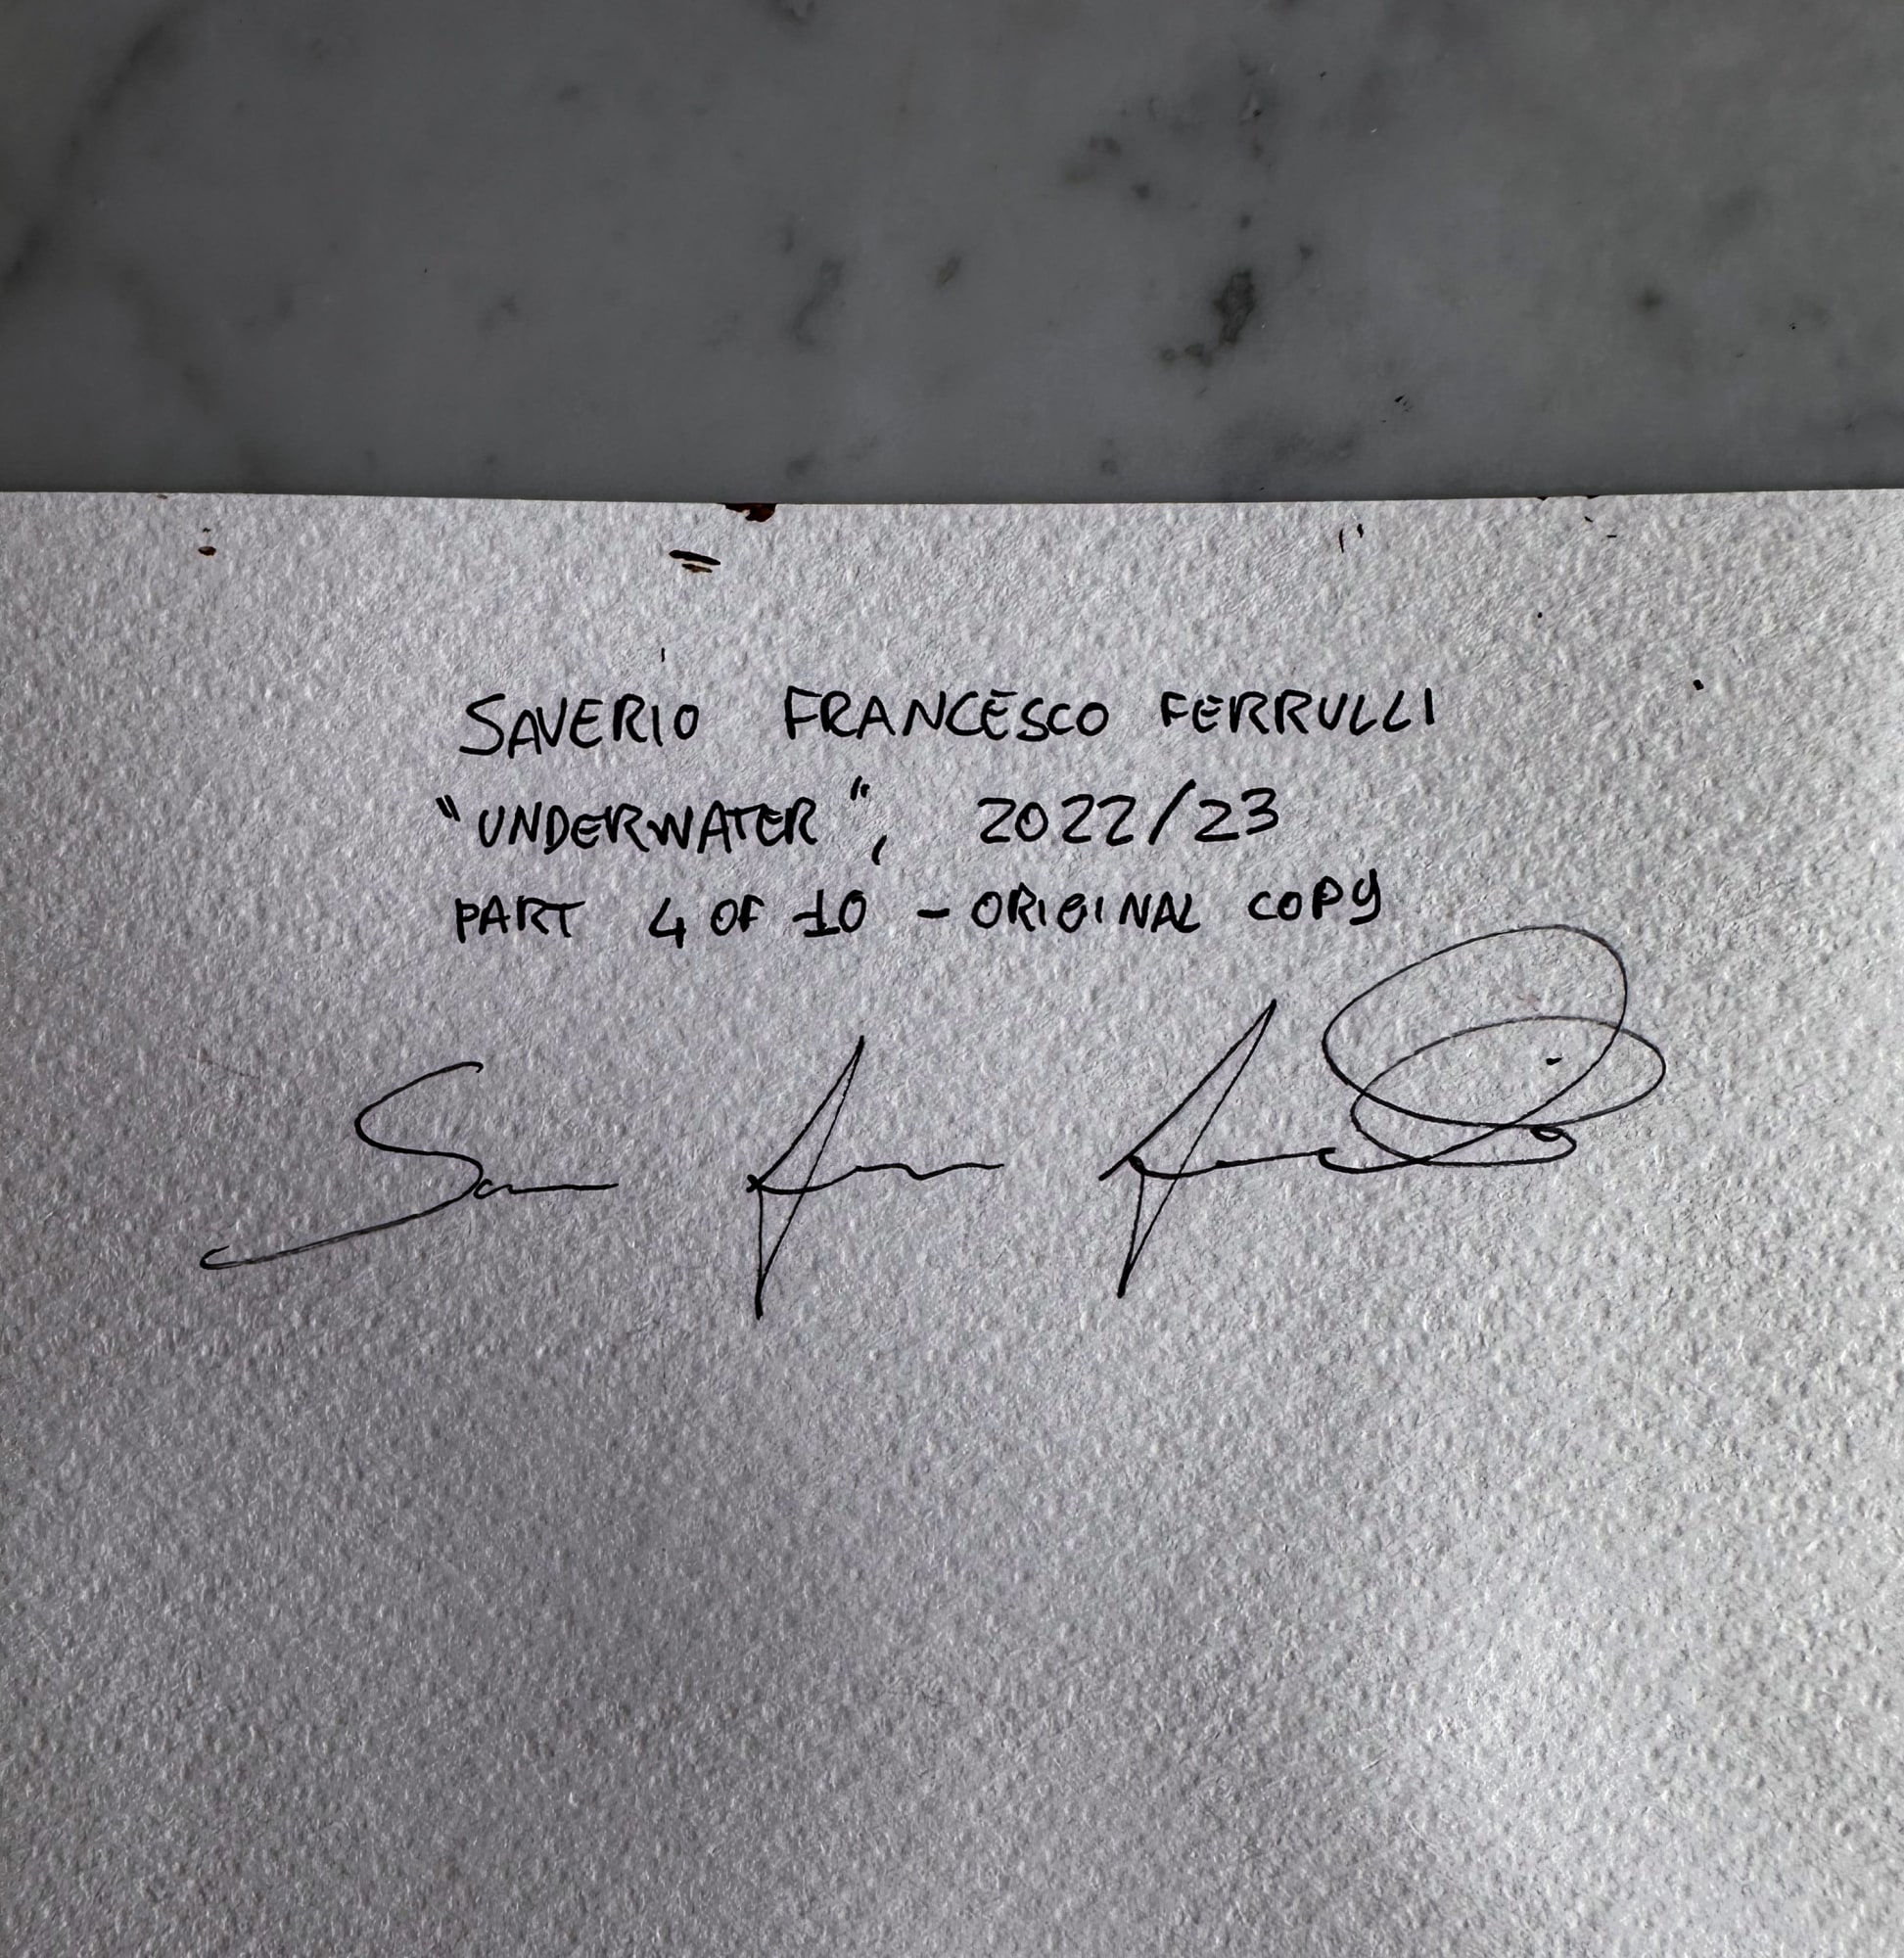 SAVERIO FRANCESCO FERRULLI
"UNDERWATER", 2022/23
PART 4 OF 10 - ORIGINAL COPY